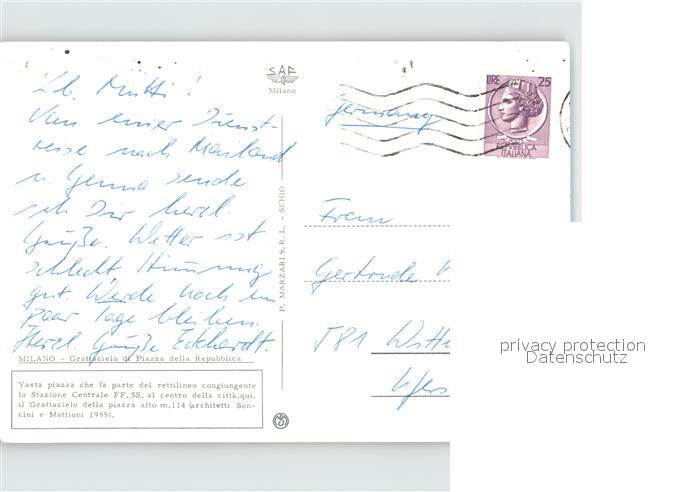 Lb. Mutti!
Von einer Dienst-
reise nach Mailand
u. Genua sende
ich Dir herzl.
Grüße. Wetter ist
schlecht, Stimmung
gut. Werde noch ein
paar Tage bleiben.
Herzl. Grüße Eckhardt.
MILANO - Grattacielo di Piazza della Repubblica
Vasta piazza che fa parte del rettilineo congiungente
la Stazione Centrale FF.SS. al centro della città, qui,
il Grattacielo della piazza alto m. 114 (architetti Son-
cini e Mattioni 1955).
SAF
Milano
P. MARZARI S.R.L. - SCHIO
Germany
LIRE 25
POSTE
REPVBBLICA
ITALIANA
Frau
Gertrude
581 Witte
privacy protection
Datenschutz